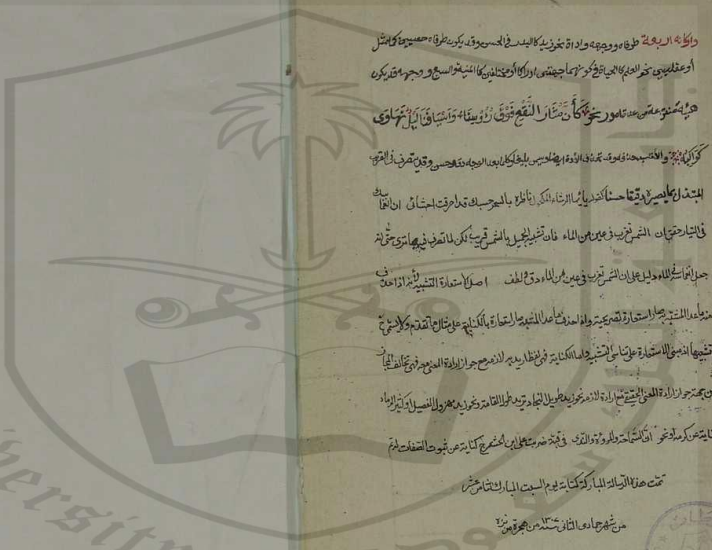 واركانه اربعة طرفاه ووجهه واداة نحو زيد كالبدر في الحسن وقد يكون طرفاه حسيين كما مثل
أو عقليين نحو العلم كالحياة في كونهما جهتي ادراك أو مختلفين كالمنية والسبع ووجهه قد يكون
هيئة من عدة امور نحو كأن مثار النقع فوق رؤوسنا وأسيافنا ليل تهاوى
كواكبه والأداة ايضا وليس بليغا وكان بعد الوجه دقة وحسن وقد يتصرف في القريب
المبتذل بما يصيره دقيقا حسنا يا أيها الرشاء المكحول ناظره بالسحر حسبك قد احرقت احشائي ان انغماسك
في التيار حقق ان الشمس تغرب في عين من الماء فان تشبيه الجميل بالشمس قريب لكن لما تصرف فيه بما ترى حتى انه
جعل انغماسه في الماء دليل على ان الشمس تغرب في عين من الماء دق ولطف اصل الاستعارة التشبيه لأنه اذا حذف
منه ما عدا المشبه به صار استعارة تصريحية واذا حذف ما عدا المشبه صار استعارة بالكناية على مثال ما تقدم ولا يسمى
تشبيها اذ مبنى الاستعارة على تناسي التشبيه واما الكناية فهي لفظ اريد به لازم مع جواز ارادة المعنى معه فهي تخالف المجاز
من جهة جواز ارادة المعنى الحقيقي مع ارادة لازمه نحو زيد طويل النجاد تريد طول القامة ونحو زيد مهزول الفصيل وكثير الرماد
كناية عن كرمه ونحو ان السماحة والمروءة والندى في قبة ضربت على ابن الحشرج كناية عن ثبوت الصفات له تم
تمت هذه الرسالة المباركة كتابة يوم السبت المبارك عشر
من شهر جمادى الثاني سنة من هجرة من